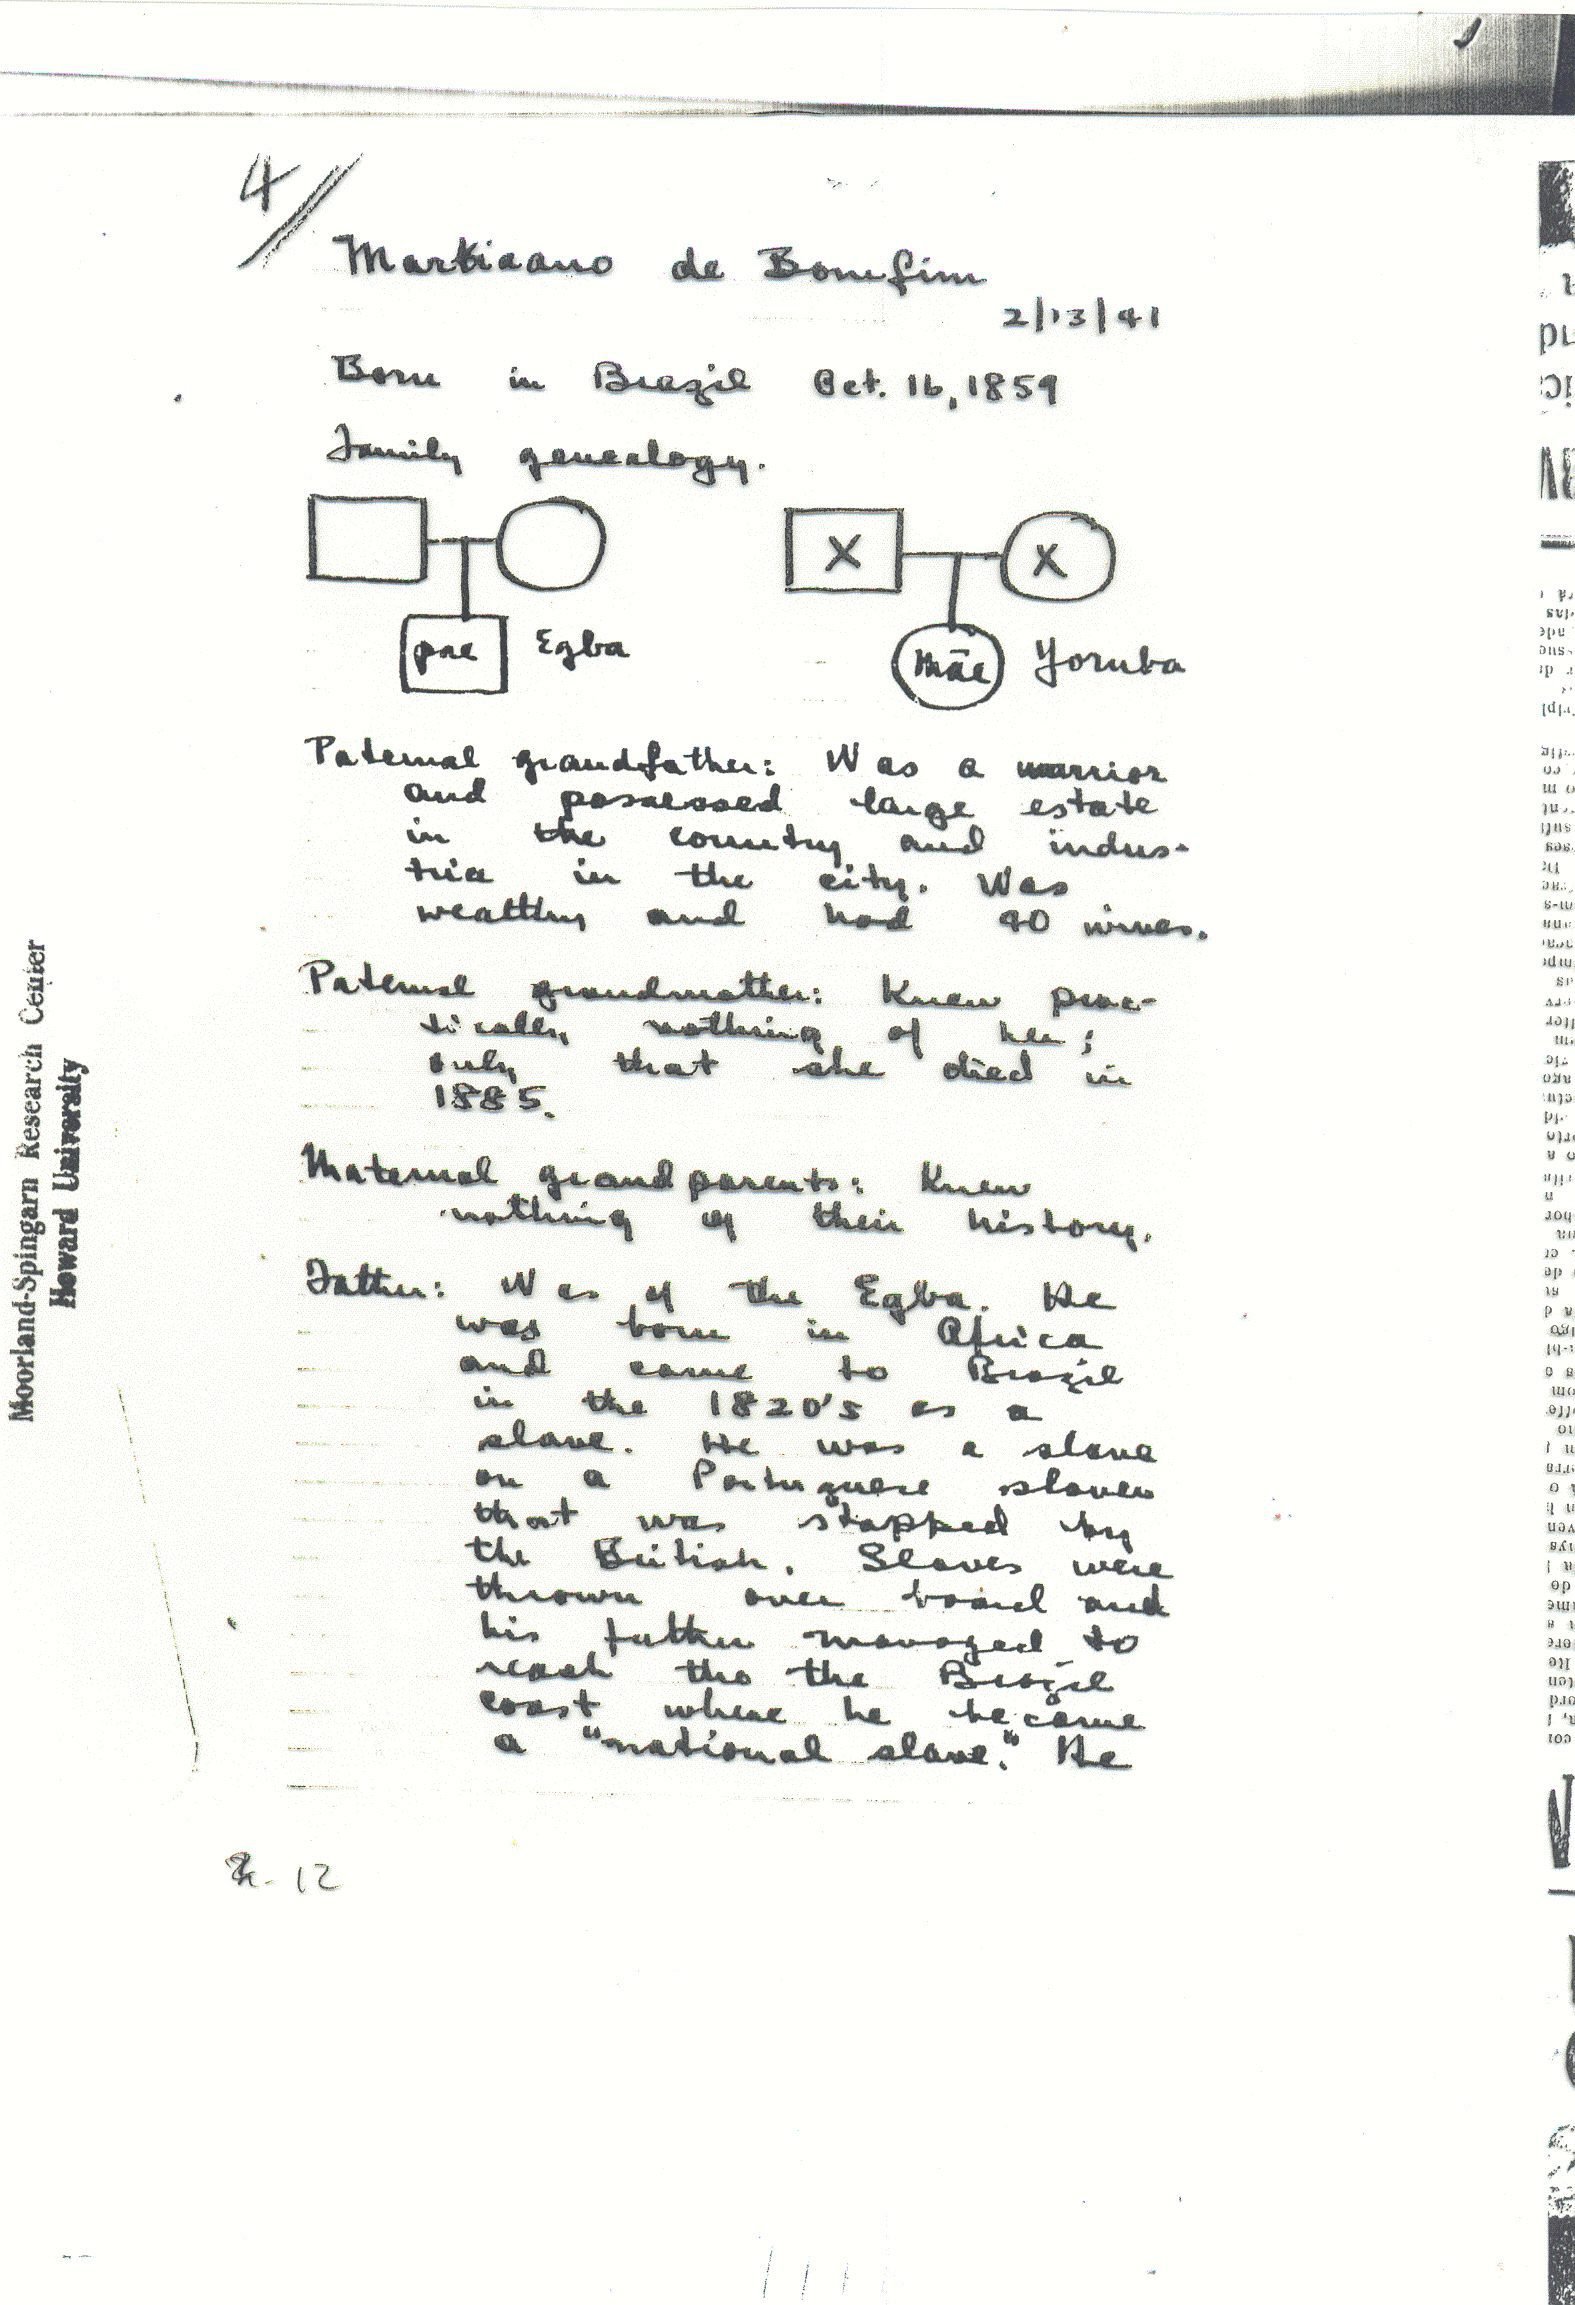 4//
Martiaano de Bomfim
2/13/41
Born in Brazil Oct. 16, 1859
Family genealogy.
X X
pae Egba mãe Yoruba
Paternal grandfather: Was a warrior
and possessed large estate
in the country and indus-
trie in the city. Was
wealthy and had 40 wives.
Paternal grandmother: Knew prac-
tically nothing of her;
only that she died in
1885.
Maternal grandparents: Knew
nothing of their history.
Father: Was of the Egba. He
was born in Africa
and came to Brazil
in the 1820's as a
slave. He was a slave
on a Portuguese slaver
that was stopped by
the British. Slaves were
thrown over board and
his father managed to
reach the the Brazil
coast where he became
a "national slave." He
12
Moorland-Spingarn Research Center
Howard University